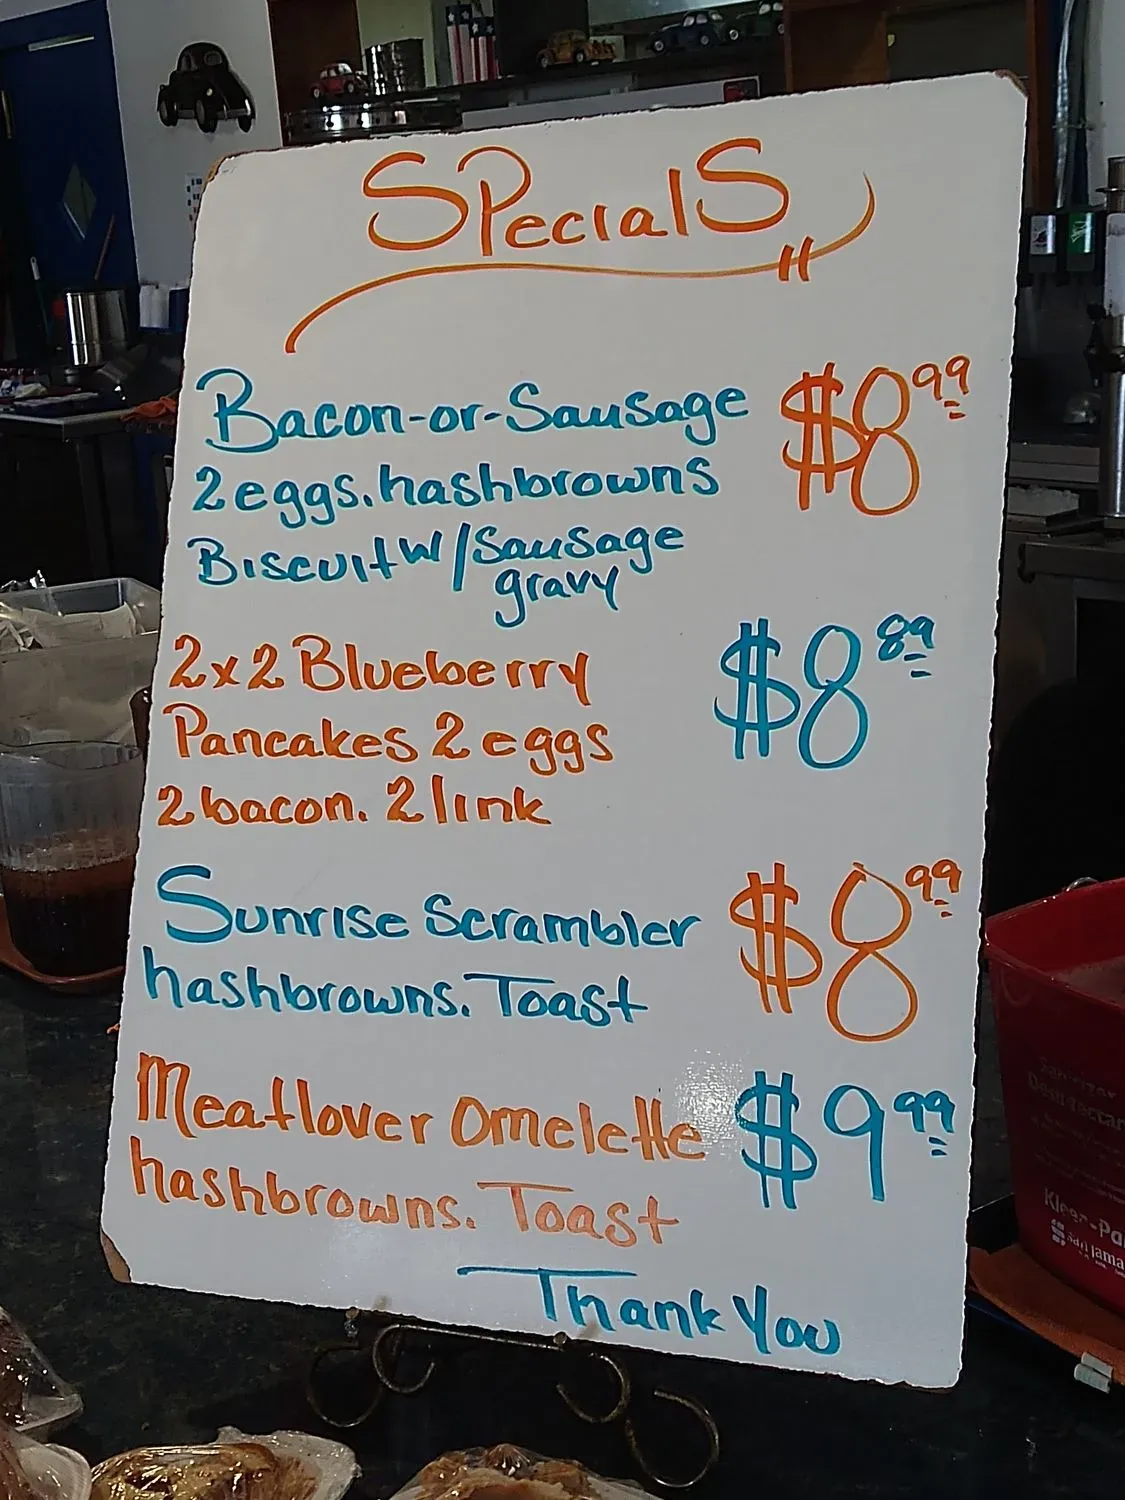 SPecialS
Bacon-or-Sausage $8.99
2 eggs. hashbrowns
Biscuit w/ Sausage
gravy
2x2 Blueberry $8.89
Pancakes 2 eggs
2 bacon. 2 link
Sunrise Scrambler $8.99
hashbrowns. Toast
Meatlover Omelette $9.99
hashbrowns. Toast
Thank You
Kleen-Pa
San Jama